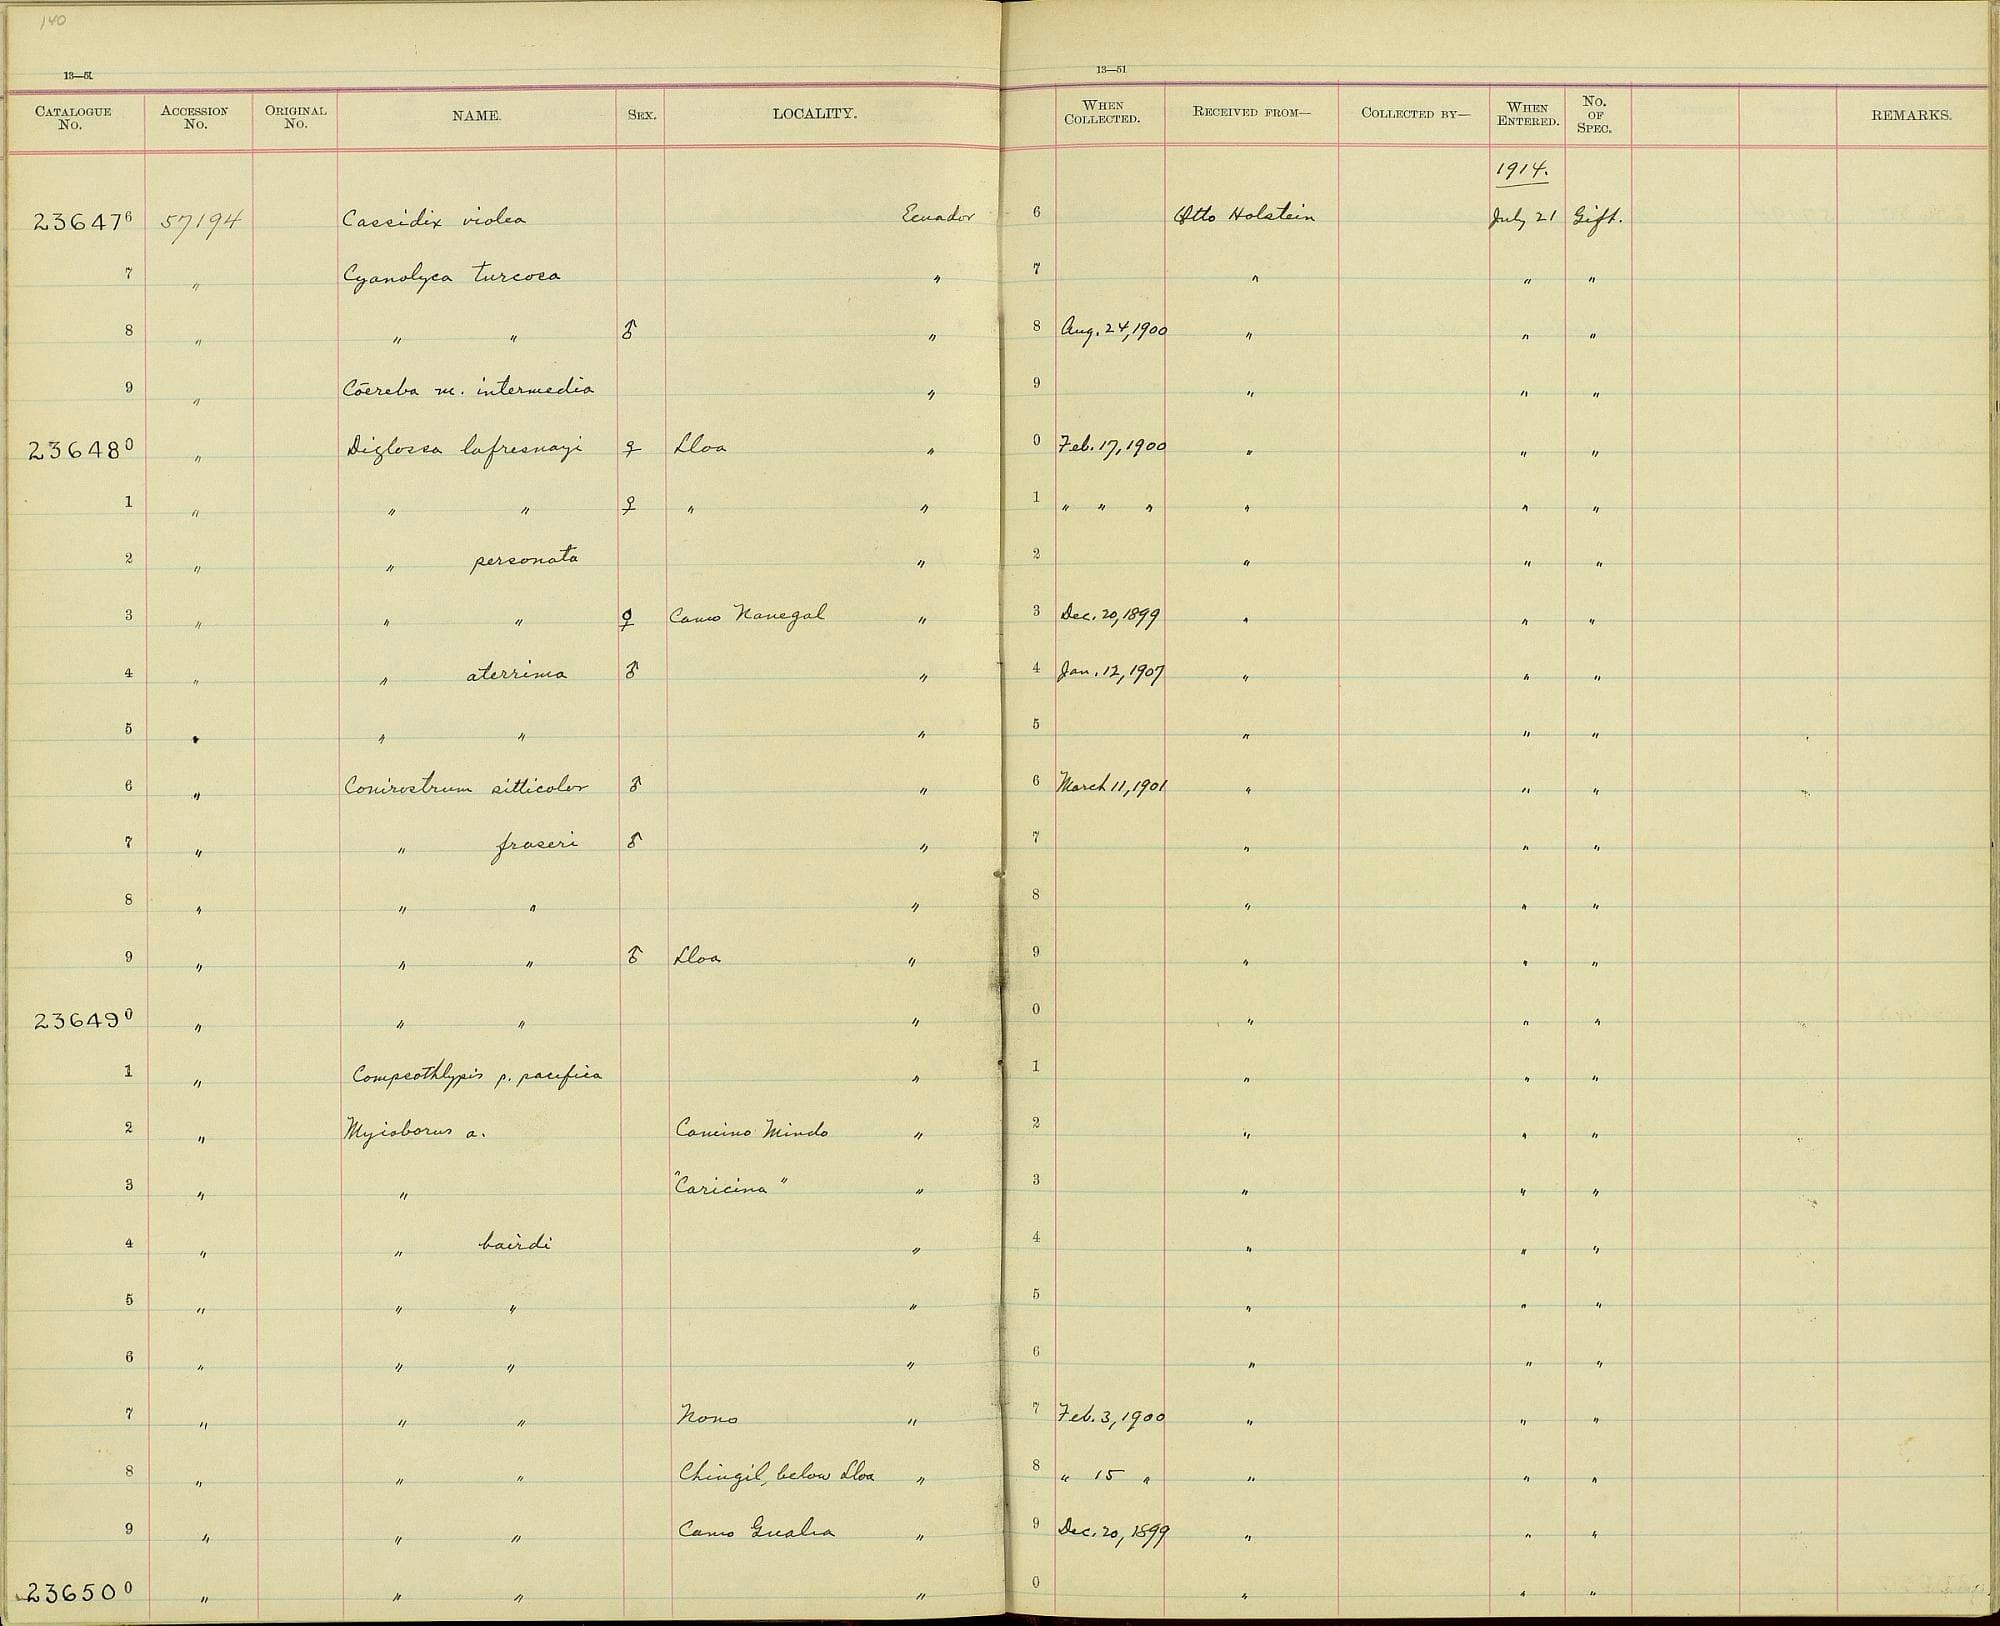 140
13—51 13—51
CATALOGUE No. ACCESSION No. ORIGINAL No. NAME. SEX. LOCALITY. WHEN COLLECTED. RECEIVED FROM— COLLECTED BY— WHEN ENTERED. No. OF SPEC. REMARKS.
1914.
236476 57194 Cassidix violea Ecuador 6 Otto Holstein July 21 Gift.
7 " Cyanolyca turcosa " 7 " " "
8 " " " ♂ " 8 Aug. 24, 1900 " " "
9 " Cōereba m. intermedia " 9 " " "
236480 " Diglossa lafresnayi ♀ Lloa " 0 Feb. 17, 1900 " " "
1 " " " ♀ " " 1 " " " " " "
2 " " personata " 2 " " "
3 " " " ♀ Camo Nanegal " 3 Dec. 20, 1899 " " "
4 " " aterrima ♂ " 4 Jan. 12, 1907 " " "
5 " " " " 5 " " "
6 " Conirostrum sitticolor ♂ " 6 March 11, 1901 " " "
7 " " fraseri ♂ " 7 " " "
8 " " " " 8 " " "
9 " " " ♂ Lloa " 9 " " "
236490 " " " " 0 " " "
1 " Compsothlypis p. pacifica " 1 " " "
2 " Myioborus a. Camino Mindo " 2 " " "
3 " " "Caricina" " 3 " " "
4 " " bairdi " 4 " " "
5 " " " " 5 " " "
6 " " " " 6 " " "
7 " " " Nono " 7 Feb. 3, 1900 " " "
8 " " " Chingil, below Lloa " 8 " 15 " " " "
9 " " " Camo Gualea " 9 Dec. 20, 1899 " " "
236500 " " " " 0 " " "